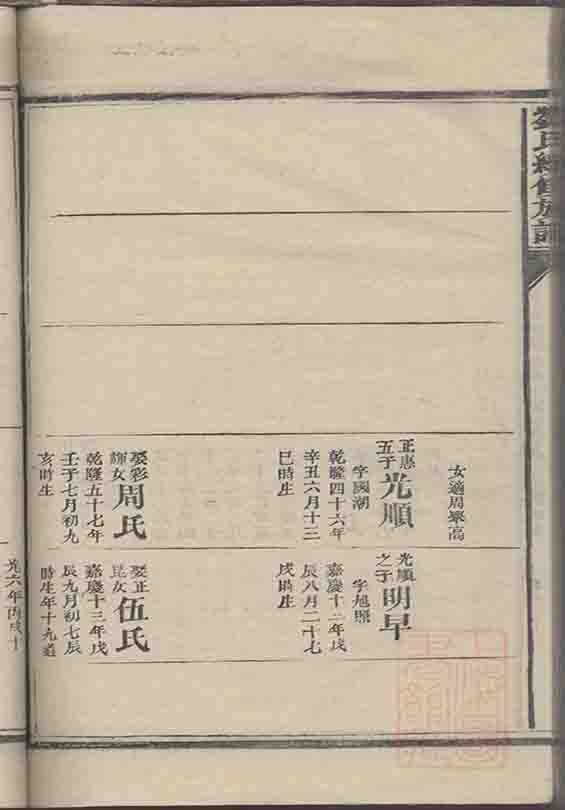 劉氏續修族譜
女適周翠高
正惠
五子光順
字國潮
乾隆四十六年
辛丑六月十三
巳時生
娶彩
周氏
乾隆五十七年
壬子七月初九
亥時生
光順
之子明早
字旭照
嘉慶十二年戊
辰八月二十七
戌時生
娶正
昆女伍氏
嘉慶十三年戊
辰九月初七辰
時生年十九適
光六年丙戌十